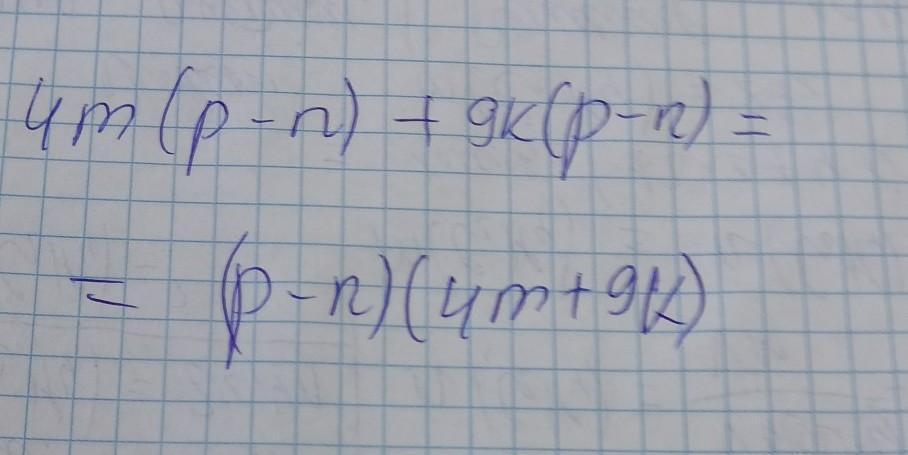 4m(p-n) + 9k(p-n) =
= (p-n)(4m+9k)